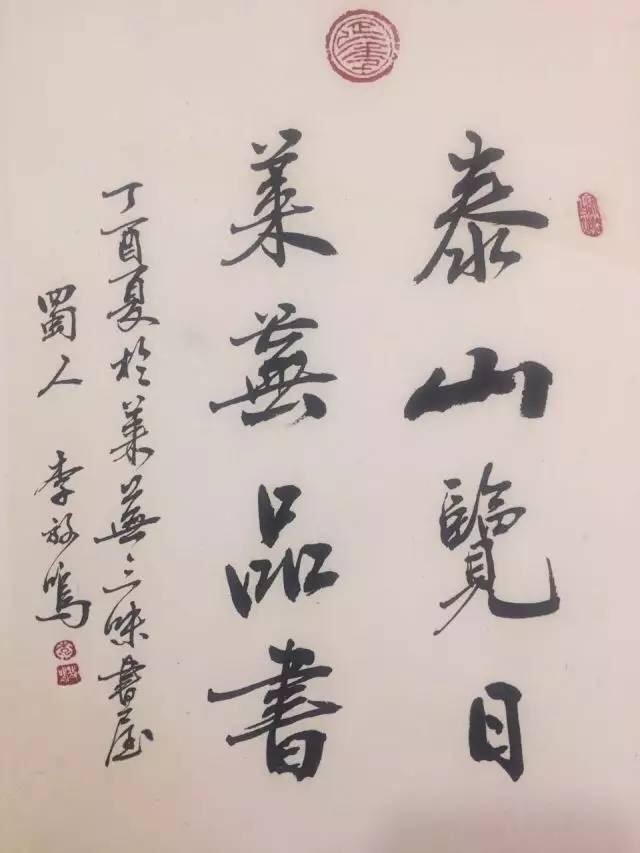 泰山覽日
萊蕪品書
丁酉夏於萊蕪三味書屋
蜀人 李放鳴